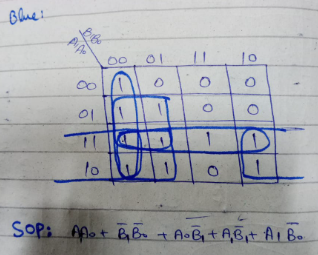 Blue:
B₁B₀
A₁A₀
00 01 11 10
00 1 0 0 0
01 1 1 0 0
11 1 1 1 1
10 1 1 0 1
SOP: A₁A₀ + B̅₁B̅₀ + A₀B̅₁ + A₁B̅₁ + A₁B̅₀